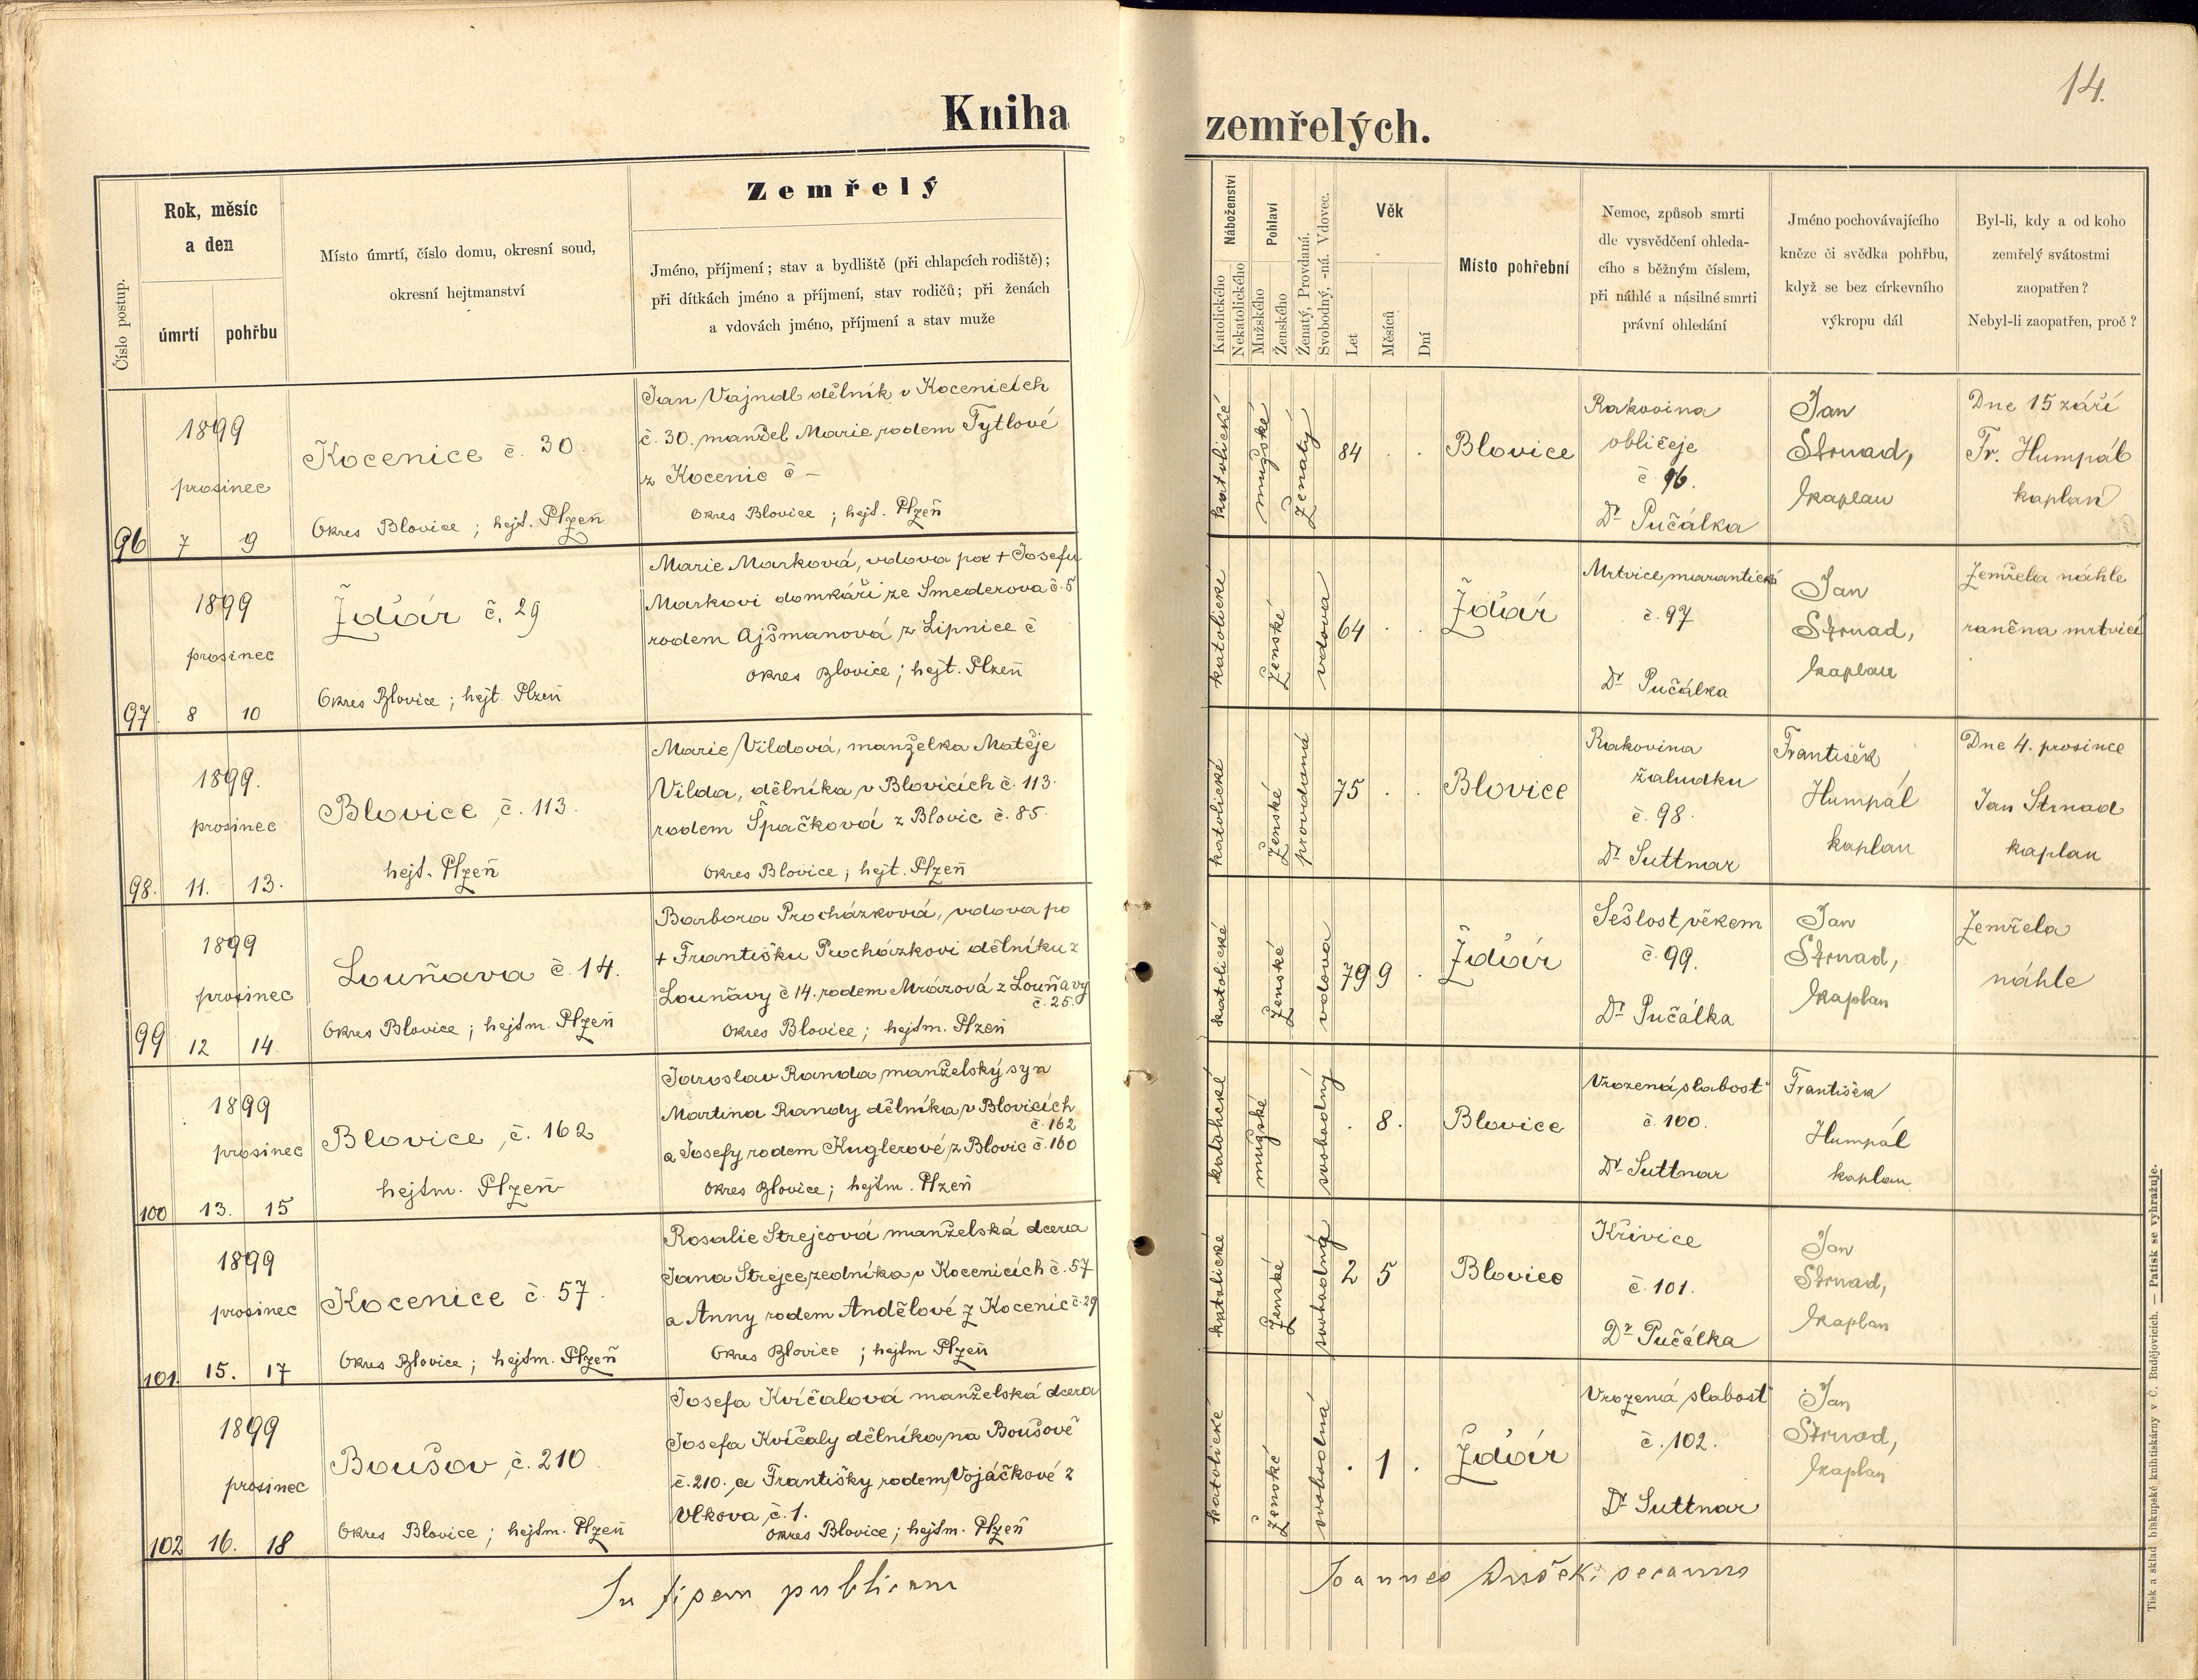 14.
Kniha zemřelých.
Číslo postup.
Rok, měsíc
a den
úmrtí
pohřbu
Místo úmrtí, číslo domu, okresní soud,
okresní hejtmanství
Zemřelý
Jméno, příjmení; stav a bydliště (při chlapcích rodiště);
při dítkách jméno a příjmení, stav rodičů; při ženách
a vdovách jméno, příjmení a stav muže
Náboženství
Katolického
Nekatolického
Pohlaví
Mužského
Ženského
Ženatý, Provdaná.
Svobodný, -ná. Vdovec.
Věk
Let
Měsíců
Dní
Místo pohřební
Nemoc, způsob smrti
dle vysvědčení ohleda-
cího s běžným číslem,
při náhlé a násilné smrti
právní ohledání
Jméno pochovávajícího
kněze či svědka pohřbu,
když se bez církevního
výkropu dál
Byl-li, kdy a od koho
zemřelý svátostmi
zaopatřen?
Nebyl-li zaopatřen, proč?
96
1899
prosinec
7
9
Kocenice č. 30.
Okres Blovice; hejt. Plzeň
Jan Vajndl dělník v Kocenicích
č. 30. manžel Marie rodem Tytlové
z Kocenic č –
Okres Blovice; hejt. Plzeň
katolické
mužské
Ženatý
84 . .
Blovice
Rakovina
obličeje
č 96.
Dr Pučálka
Jan
Strnad,
kaplan
Dne 15 září
Fr. Humpál
kaplan
97
1899
prosinec
8
10
Žďár č. 29
Okres Blovice; hejt. Plzeň
Marie Marková, vdova po + Josefu
Markovi domkáři ze Smederova č. 5
rodem Ajšmanová z Lipnice č
Okres Blovice; hejt. Plzeň
katolické
Ženské
vdova
64 . .
Žďár
Mrtvice marantická
č. 97
Dr Pučálka
Jan
Strnad,
kaplan
Zemřela náhle
raněna mrtvicí
98.
1899.
prosinec
11.
13.
Blovice č. 113.
hejt. Plzeň
Marie Vildová, manželka Matěje
Vilda, dělníka v Blovicích č. 113.
rodem Špačková z Blovic č. 85.
Okres Blovice; hejt. Plzeň
katolické
Ženské
provdaná
75 . .
Blovice
Rakovina
žaludku
č. 98.
Dr Suttnar
František
Humpál
kaplan
Dne 4. prosince
Jan Strnad
kaplan
99
1899
prosinec
12
14.
Louňava č. 14.
Okres Blovice; hejtm. Plzeň
Barbora Procházková, vdova po
+ Františku Procházkovi dělníku z
Louňavy č 14. rodem Mrázová z Louňavy
č. 25.
Okres Blovice; hejtm. Plzeň
katolické
Ženské
vdova
79 9 .
Žďár
Sešlost věkem
č. 99.
Dr Pučálka
Jan
Strnad,
kaplan
Zemřela
náhle
100
1899
prosinec
13.
15
Blovice, č. 162
hejtm. Plzeň
Jaroslav Randa manželský syn
Martina Randy dělníka v Blovicích
č. 162
a Josefy rodem Kuglerové z Blovic č. 160
Okres Blovice; hejtm. Plzeň
katolické
mužské
svobodný
. 8 .
Blovice
Vrozená slabost
č. 100.
Dr Suttnar
František
Humpál
kaplan
101.
1899
prosinec
15.
17
Kocenice č. 57.
Okres Blovice; hejtm. Plzeň
Rosalie Strejcová manželská dcera
Jana Strejce zedníka v Kocenicích č. 57
a Anny rodem Andělové z Kocenic č. 29
Okres Blovice; hejtm Plzeň
katolické
Ženské
svobodná
2 5
Blovice
Křivice
č. 101.
Dr Pučálka
Jan
Strnad,
kaplan
102
1899
prosinec
16.
18
Boušov, č. 210
Okres Blovice; hejtm. Plzeň
Josefa Kvíčalová manželská dcera
Josefa Kvíčaly dělníka na Boušově
č. 210. a Františky rodem Vojáčkové z
Vlkova č. 1.
Okres Blovice; hejtm. Plzeň
katolické
Ženské
svobodná
. 1 .
Žďár
Vrozená slabost
č. 102.
Dr Suttnar
Jan
Strnad,
kaplan
In fidem publicam
Joannes decanus
Tisk a sklad biskupské knihtiskárny v Č. Budějovicích. — Patisk se vyhražuje.